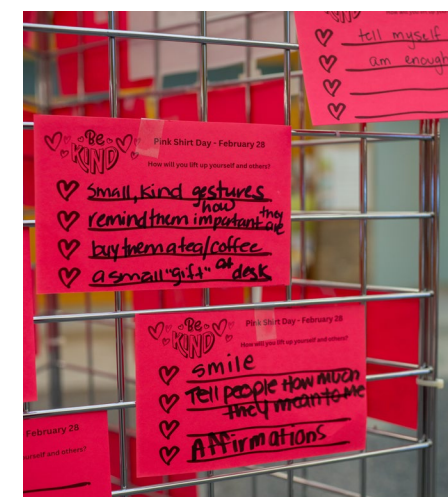 tell myself
am enough
Be
KIND
Pink Shirt Day - February 28
How will you lift up yourself and others?
small, kind gestures
remind them how important they are
buy them a tea/coffee
a small "gift" at desk
Be
KIND
Pink Shirt Day - February 28
How will you lift up yourself and others?
smile
Tell people How much
they mean to Me
Affirmations
February 28
yourself and others?